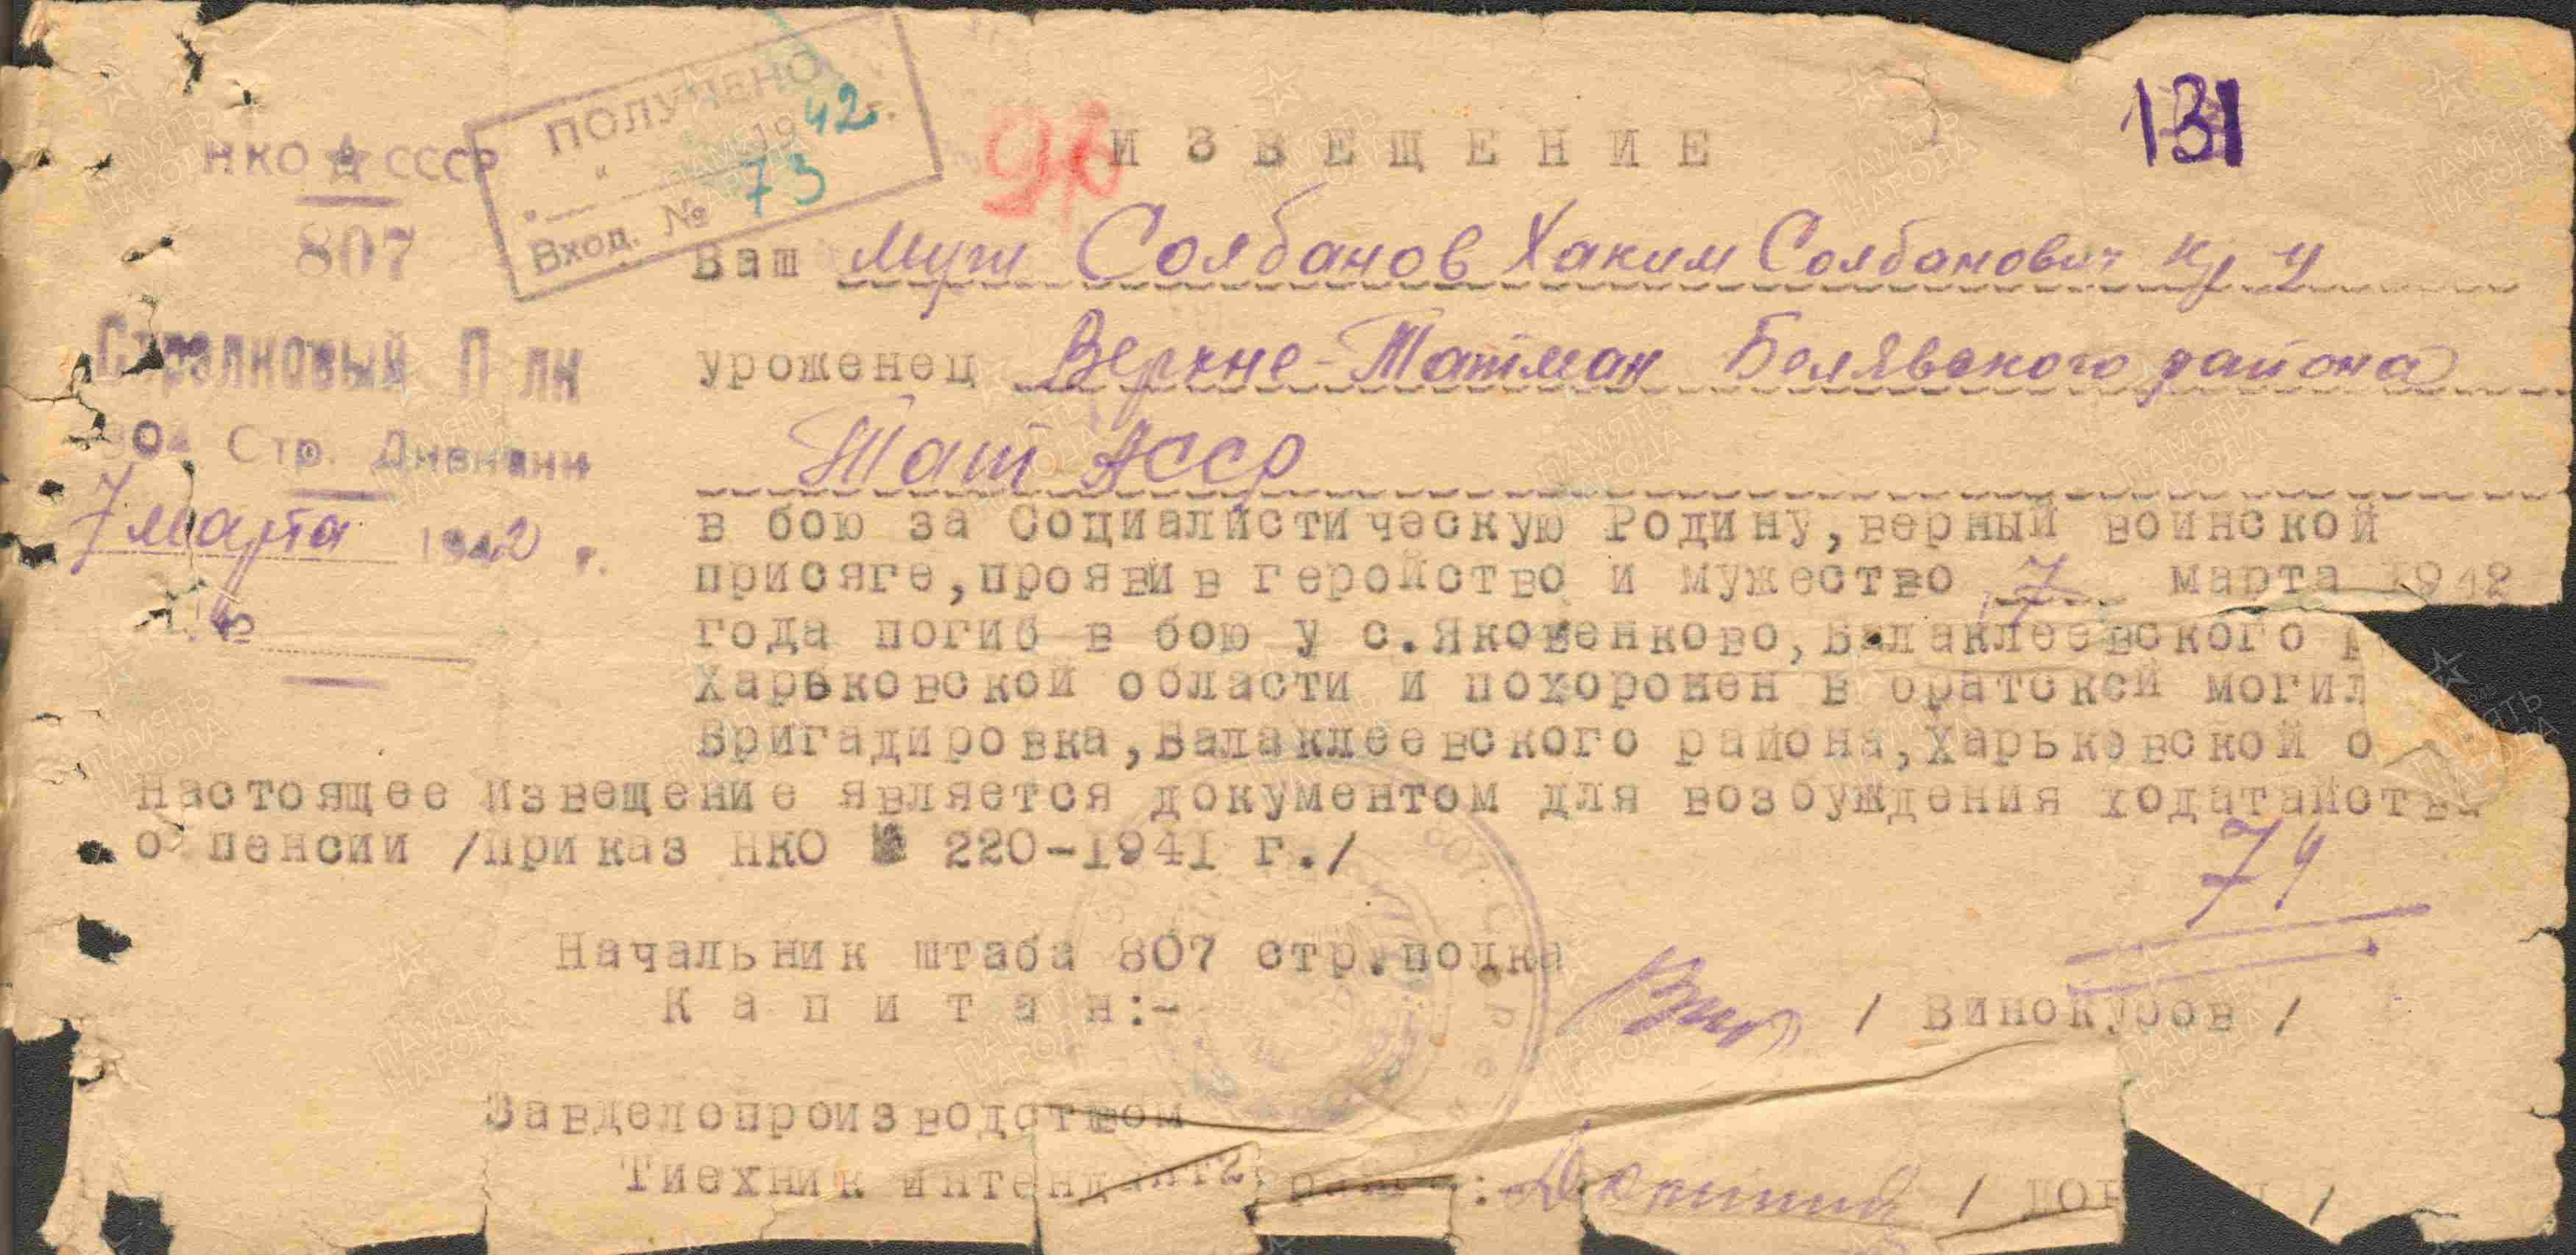 131
ПОЛУЧЕНО
1942г.
Вход. № 73
НКО СССР
807
Стрелковый Полк
304 Стр. Дивизии
7 марта 1942 г.
ИЗВЕЩЕНИЕ
Ваш муж Солбанов Хаким Солбанович
уроженец Верхне-Татман Белявского района
Тат АССР
в бою за Социалистическую Родину, верный воинской
присяге, проявив геройство и мужество 7 марта 1942
года погиб в бою у с.Яковенково, Балаклеевского
Харьковской области и похоронен в братской могил
Бригадировка, Балаклеевского района, Харьковской о
Настоящее извещение является документом для возбуждения ходатайства
о пенсии /Приказ НКО № 220-1941 г./
74
Начальник штаба 807 стр.полка
Капитан:- / Винокуров /
Завделопроизводством
Тиехник интендант 2 ранга: